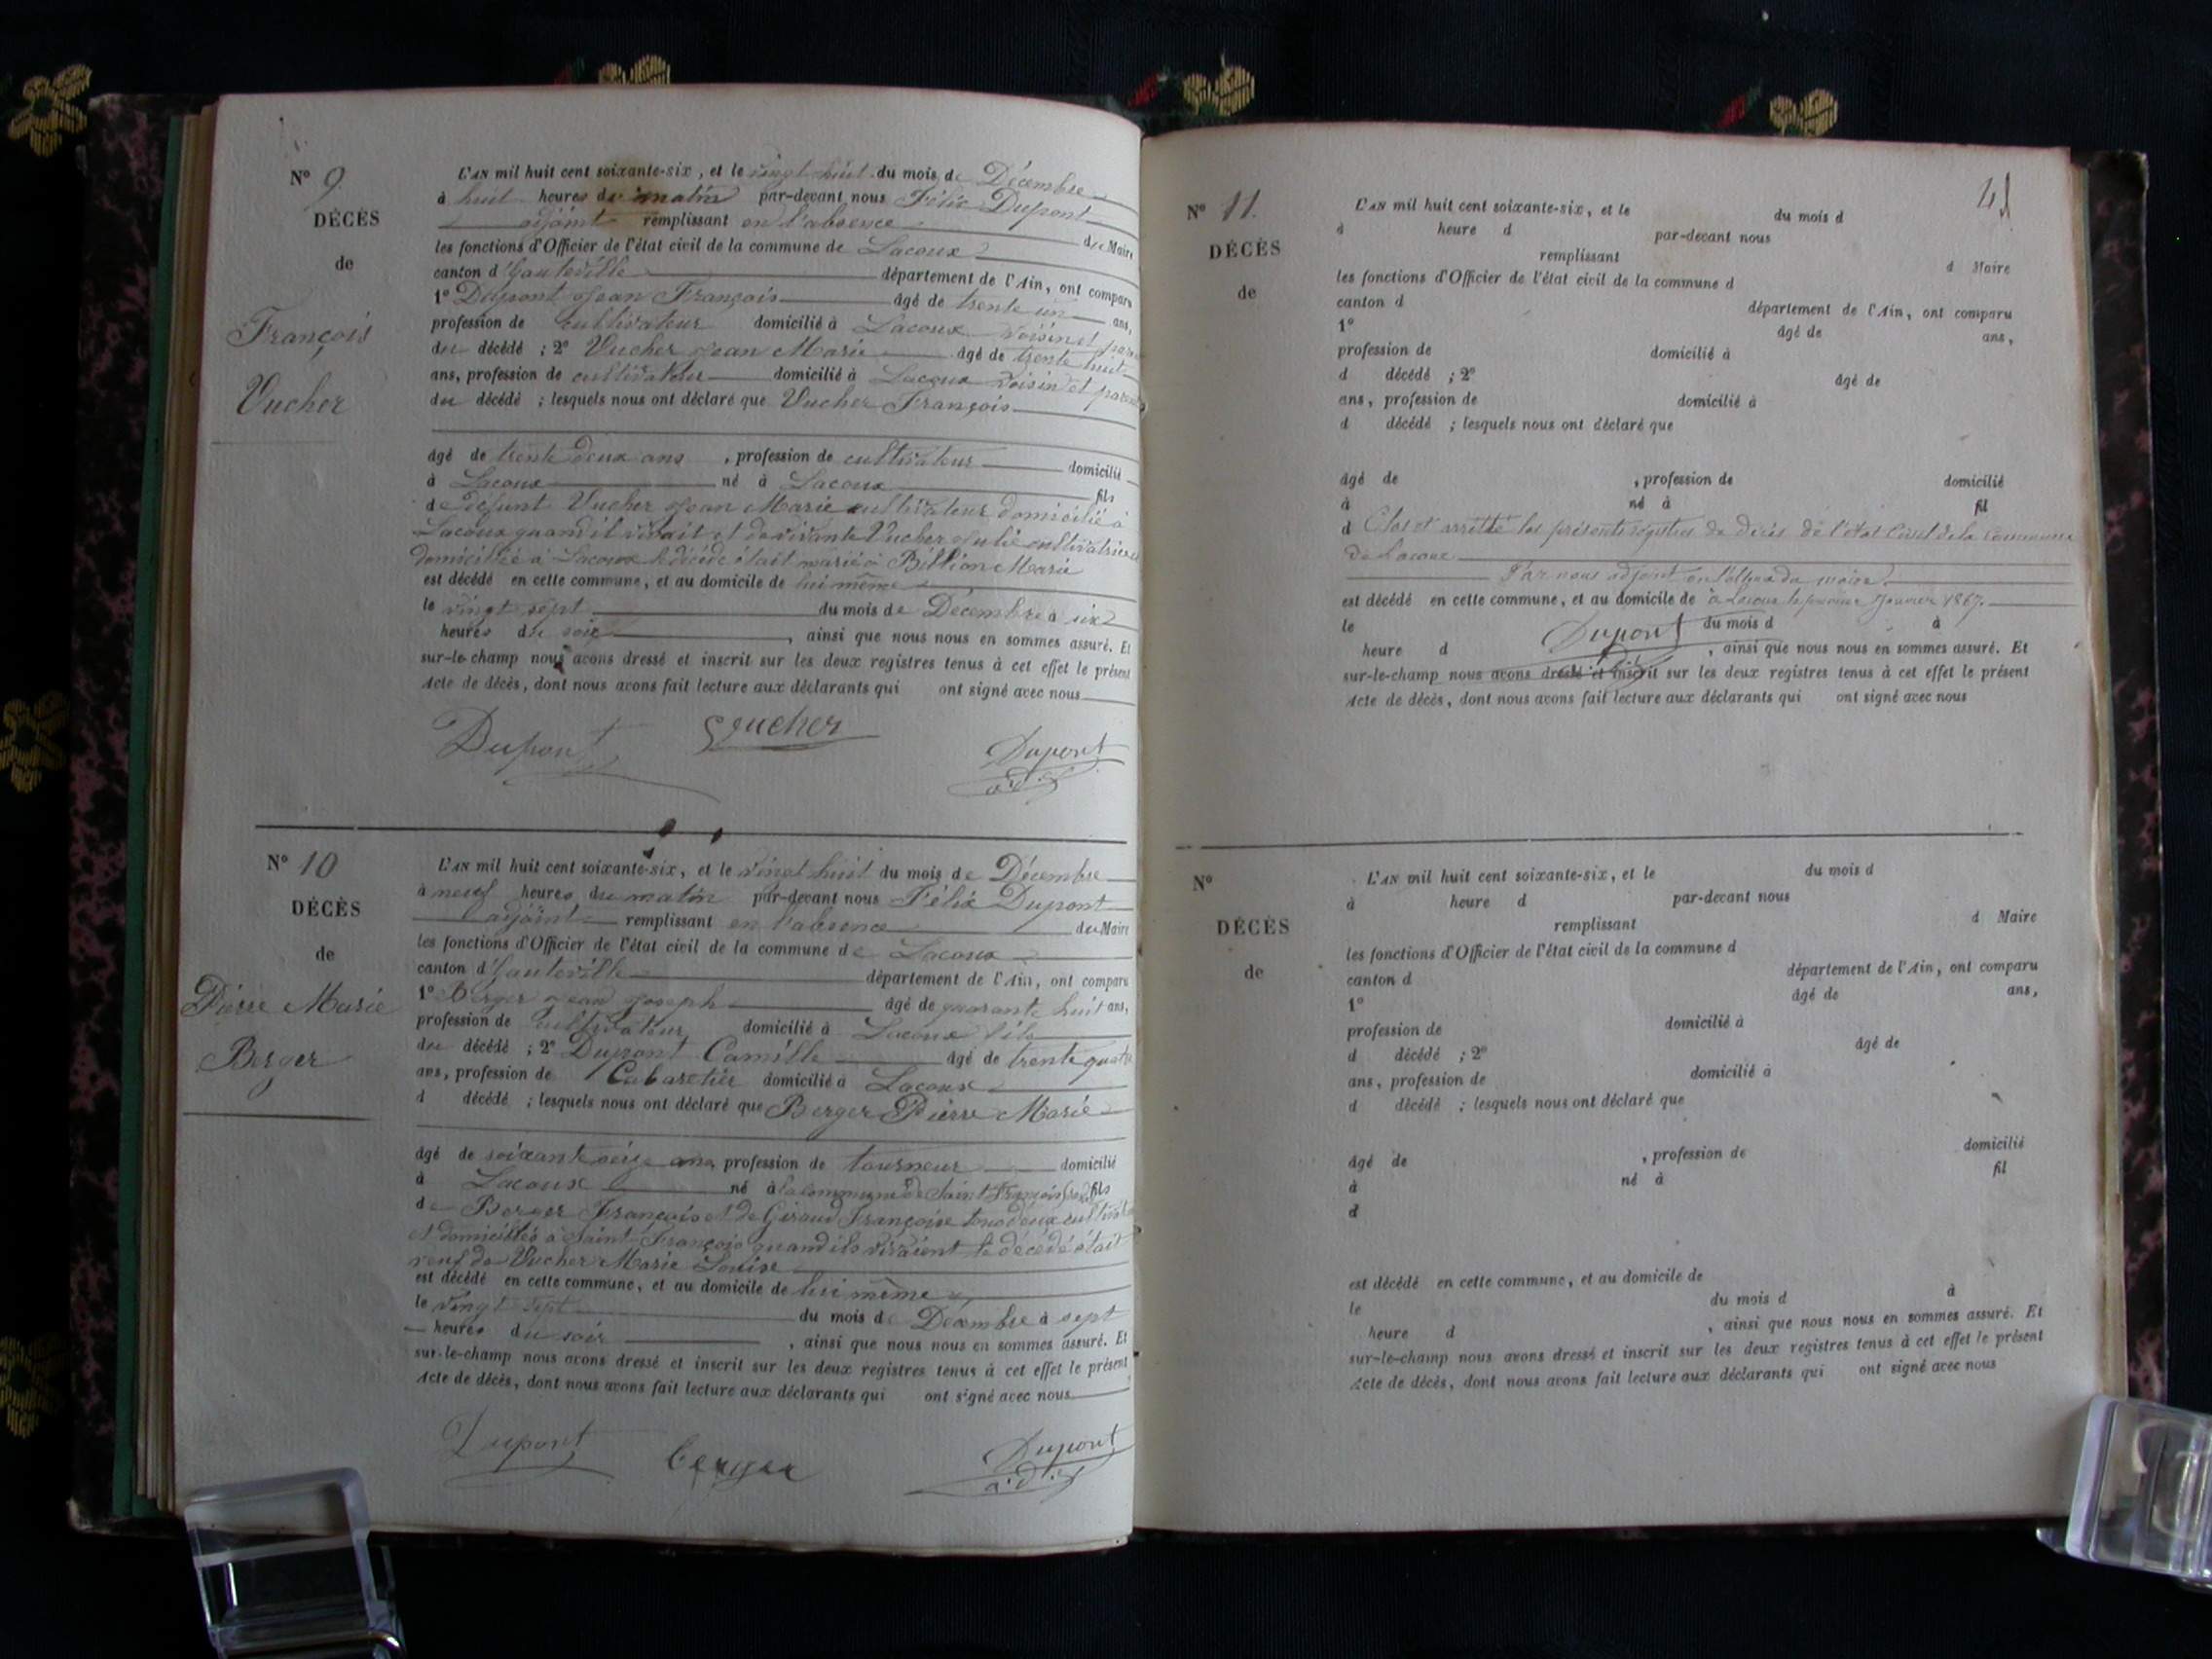 N° 9
DÉCÈS
de
François
Vucher
L'AN mil huit cent soixante-six, et le vingt huit du mois de Décembre
à huit heures du matin par-devant nous Félix Dupont
adjoint remplissant en l'absence du Maire
les fonctions d'Officier de l'état civil de la commune de Lacoux
canton d'hauteville département de l'Ain, ont comparu
1° Dupont Jean François âgé de trente un ans,
profession de cultivateur domicilié à Lacoux voisin et
du décédé ; 2° Vucher Jean Marie âgé de trente huit
ans, profession de cultivateur domicilié à Lacoux voisin et
du décédé ; lesquels nous ont déclaré que Vucher François
âgé de trente deux ans , profession de cultivateur domicilié
à Lacoux né à Lacoux fils
de défunt Vucher Jean Marie cultivateur domicilié à
Lacoux quand il vivait et de vivante Vucher Julie cultivatrice
domiciliée à Lacoux le décédé était marié à Billion Marie
est décédé en cette commune, et au domicile de lui même
le vingt sept du mois de Décembre à six
heures du soir , ainsi que nous nous en sommes assuré. Et
sur-le-champ nous avons dressé et inscrit sur les deux registres tenus à cet effet le présent
Acte de décès, dont nous avons fait lecture aux déclarants qui ont signé avec nous
Dupont Vucher Dupont
adj
N° 10
DÉCÈS
de
Pierre Marie
Berger
L'AN mil huit cent soixante-six, et le vingt huit du mois de Décembre
à neuf heures du matin par-devant nous Félix Dupont
adjoint remplissant en l'absence du Maire
les fonctions d'Officier de l'état civil de la commune de Lacoux
canton d'hauteville département de l'Ain, ont comparu
1° Berger Jean Joseph âgé de quarante huit ans,
profession de cultivateur domicilié à Lacoux fils
du décédé ; 2° Dupont Camille âgé de trente quatre
ans, profession de Cabaretier domicilié à Lacoux
d décédé ; lesquels nous ont déclaré que Berger Pierre Marie
âgé de soixante seize ans, profession de tourneur domicilié
à Lacoux né à la commune de Saint François fils
de Berger François et de Giraud Françoise tous deux
et domiciliés à Saint François quand ils vivaient le décédé était
veuf de Vucher Marie Louise
est décédé en cette commune, et au domicile de lui même
le vingt sept du mois de Décembre à sept
heures du soir , ainsi que nous nous en sommes assuré. Et
sur-le-champ nous avons dressé et inscrit sur les deux registres tenus à cet effet le présent
Acte de décès, dont nous avons fait lecture aux déclarants qui ont signé avec nous
Dupont berger Dupont
adj
N° 11.
DÉCÈS
de
L'AN mil huit cent soixante-six, et le du mois d
à heure d par-devant nous
remplissant d Maire
les fonctions d'Officier de l'état civil de la commune d
canton d département de l'Ain, ont comparu
1° âgé de ans,
profession de domicilié à
d décédé ; 2° âgé de
ans, profession de domicilié à
d décédé ; lesquels nous ont déclaré que
âgé de , profession de domicilié
à né à fil
d Clos et arrêtté les présents registres de décès de l'état civil de la commune
de Lacoux
Par nous adjoint en l'absence du maire
est décédé en cette commune, et au domicile de à Lacoux le premier Janvier 1867.
le Dupont du mois d à
heure d , ainsi que nous nous en sommes assuré. Et
sur-le-champ nous avons dressé et inscrit sur les deux registres tenus à cet effet le présent
Acte de décès, dont nous avons fait lecture aux déclarants qui ont signé avec nous
N°
DÉCÈS
de
L'AN mil huit cent soixante-six, et le du mois d
à heure d par-devant nous
remplissant d Maire
les fonctions d'Officier de l'état civil de la commune d
canton d département de l'Ain, ont comparu
1° âgé de ans,
profession de domicilié à
d décédé ; 2° âgé de
ans, profession de domicilié à
d décédé ; lesquels nous ont déclaré que
âgé de , profession de domicilié
à né à fil
d
est décédé en cette commune, et au domicile de
le du mois d à
heure d , ainsi que nous nous en sommes assuré. Et
sur-le-champ nous avons dressé et inscrit sur les deux registres tenus à cet effet le présent
Acte de décès, dont nous avons fait lecture aux déclarants qui ont signé avec nous